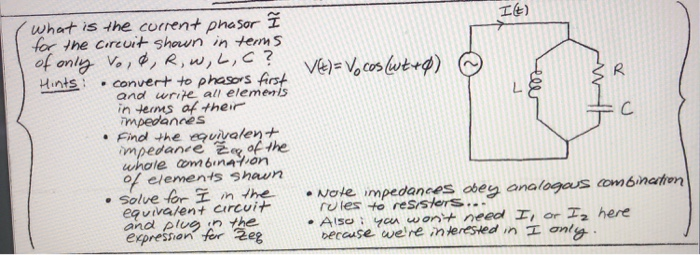 What is the current phasor Ĩ
for the circuit shown in terms
of only V₀, φ, R, ω, L, C ?
Hints: • convert to phasors first
and write all elements
in terms of their
impedances
• Find the equivalent
impedance Z̃eq of the
whole combination
of elements shown
• solve for Ĩ in the
equivalent circuit
and plug in the
expression for Zeq
V(t) = V₀ cos(ωt+φ)
I(t)
L
R
C
• Note impedances obey analogous combination
rules to resistors...
• Also: you won't need I₁ or I₂ here
because we're interested in I only.